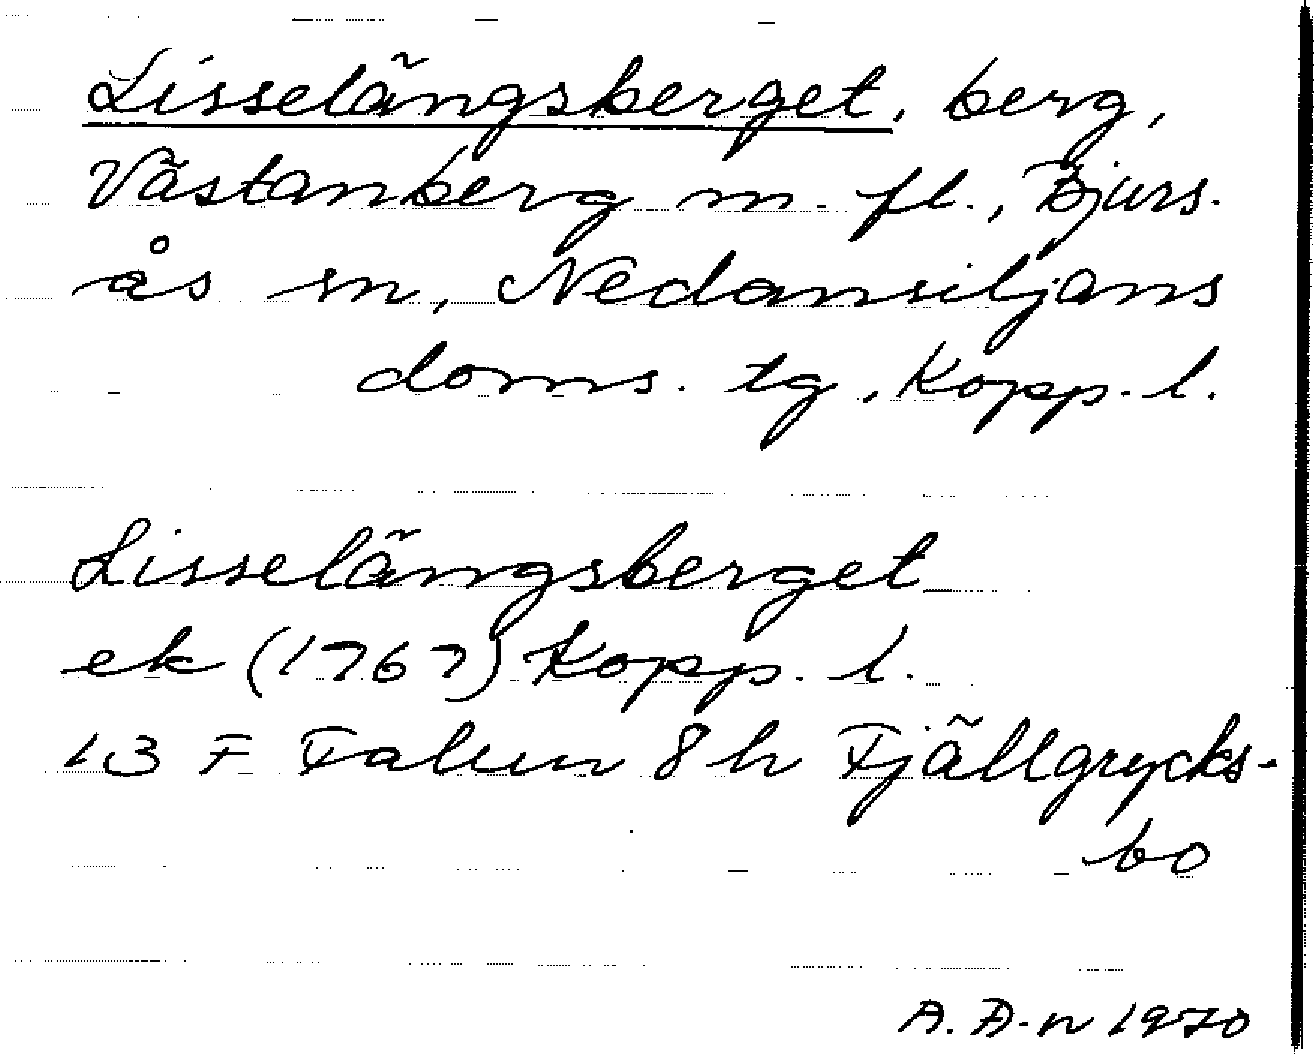 Lisselängsberget, berg,
Västanberg m. fl., Bjurs-
ås sn, Nedansiljans
doms. tg, Kopp. l.
Lisselängsberget
ek (1767) Kopp. l.
13 F Falun 8 h Fjällgrycks-
bo
A. A-n 1970